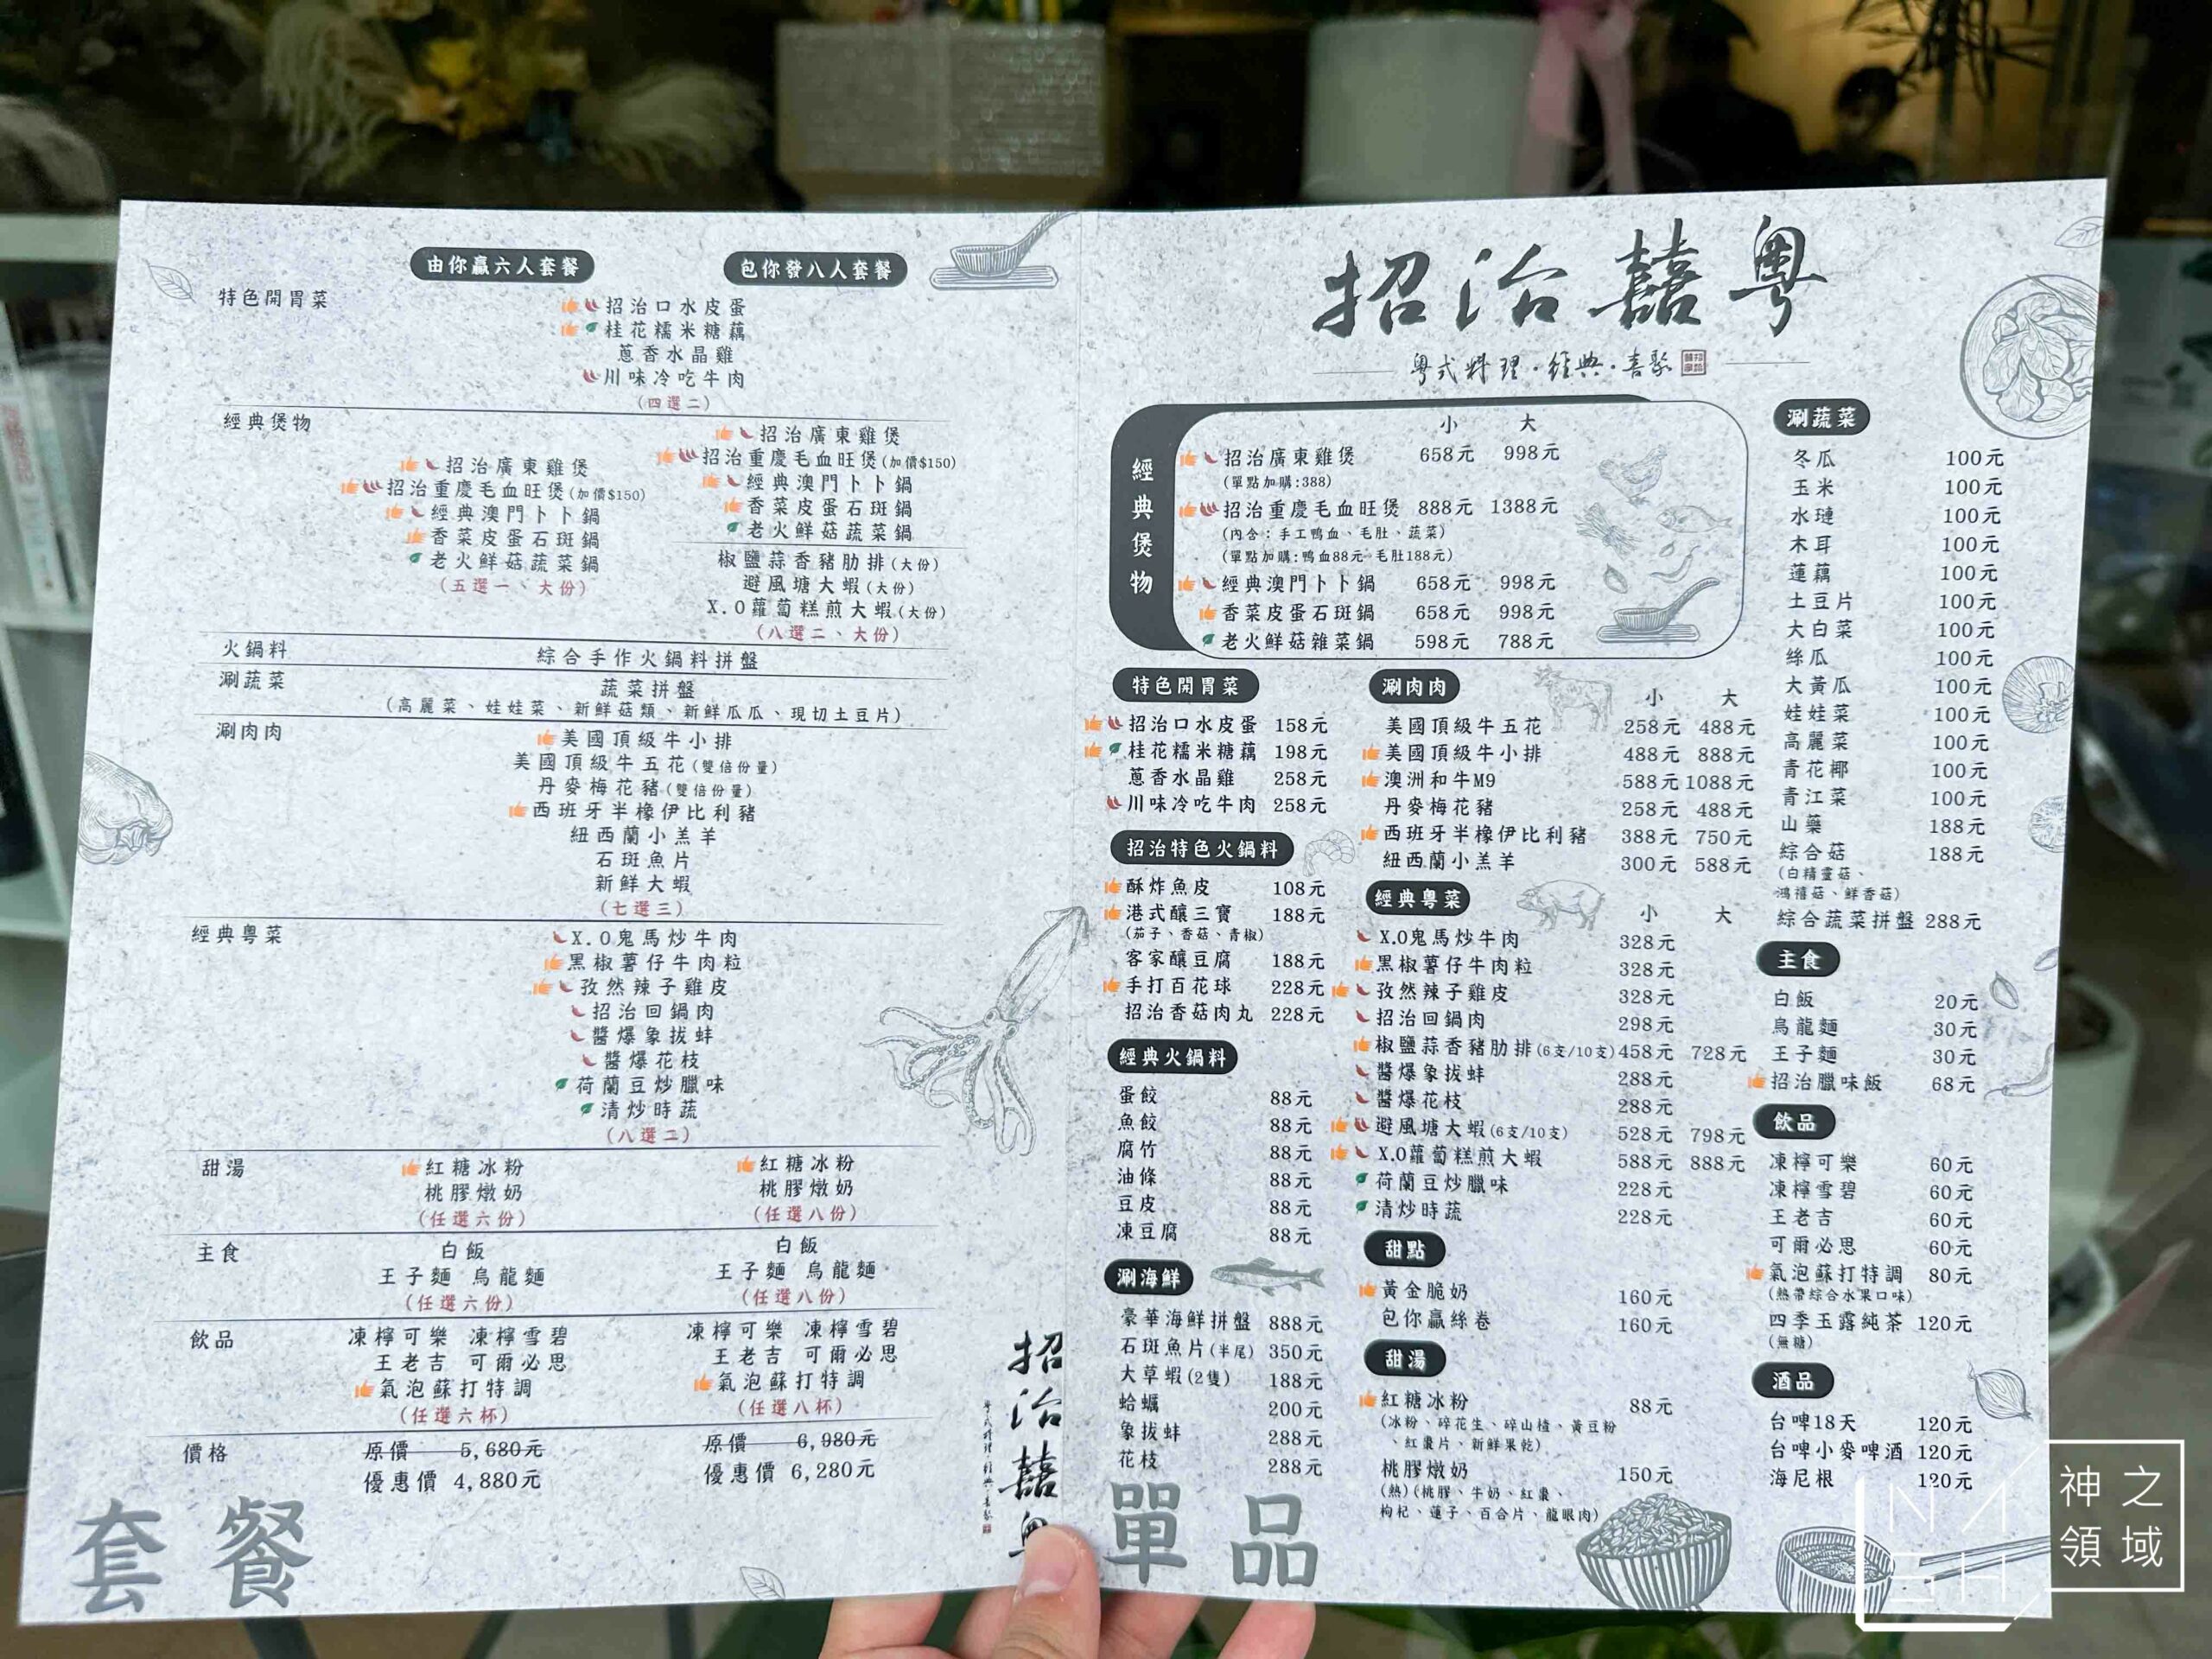 由你贏六人套餐 包你發八人套餐
特色開胃菜
招治口水皮蛋
桂花糯米糖藕
蔥香水晶雞
川味冷吃牛肉
(四選二)
經典煲物
招治廣東雞煲
招治重慶毛血旺煲(加價$150)
經典澳門卜卜鍋
香菜皮蛋石斑鍋
老火鮮菇蔬菜鍋
(五選一、大份)
招治廣東雞煲
招治重慶毛血旺煲(加價$150)
經典澳門卜卜鍋
香菜皮蛋石斑鍋
老火鮮菇蔬菜鍋
椒鹽蒜香豬肋排(大份)
避風塘大蝦(大份)
X.O蘿蔔糕煎大蝦(大份)
(八選二、大份)
火鍋料 綜合手作火鍋料拼盤
涮蔬菜 蔬菜拼盤
(高麗菜、娃娃菜、新鮮菇類、新鮮瓜瓜、現切土豆片)
涮肉肉
美國頂級牛小排
美國頂級牛五花(雙倍份量)
丹麥梅花豬(雙倍份量)
西班牙半橡伊比利豬
紐西蘭小羔羊
石斑魚片
新鮮大蝦
(七選三)
經典粵菜
X.O鬼馬炒牛肉
黑椒薯仔牛肉粒
孜然辣子雞皮
招治回鍋肉
醬爆象拔蚌
醬爆花枝
荷蘭豆炒臘味
清炒時蔬
(八選二)
甜湯
紅糖冰粉 紅糖冰粉
桃膠燉奶 桃膠燉奶
(任選六份) (任選八份)
主食
白飯 白飯
王子麵 烏龍麵 王子麵 烏龍麵
(任選六份) (任選八份)
飲品
凍檸可樂 凍檸雪碧 凍檸可樂 凍檸雪碧
王老吉 可爾必思 王老吉 可爾必思
氣泡蘇打特調 氣泡蘇打特調
(任選六杯) (任選八杯)
價格
原價 5,680元 原價 6,980元
優惠價 4,880元 優惠價 6,280元
套餐
招治囍粵
粵式料理·經典·喜聚
招治囍粵
粵式料理·經典·喜聚
經典煲物
小 大
招治廣東雞煲 658元 998元
(單點加購:388)
招治重慶毛血旺煲 888元 1388元
(內含：手工鴨血、毛肚、蔬菜)
(單點加購:鴨血88元 毛肚188元)
經典澳門卜卜鍋 658元 998元
香菜皮蛋石斑鍋 658元 998元
老火鮮菇雜菜鍋 598元 788元
特色開胃菜
招治口水皮蛋 158元
桂花糯米糖藕 198元
蔥香水晶雞 258元
川味冷吃牛肉 258元
招治特色火鍋料
酥炸魚皮 108元
港式釀三寶 188元
(茄子、香菇、青椒)
客家釀豆腐 188元
手打百花球 228元
招治香菇肉丸 228元
經典火鍋料
蛋餃 88元
魚餃 88元
腐竹 88元
油條 88元
豆皮 88元
凍豆腐 88元
涮海鮮
豪華海鮮拼盤 888元
石斑魚片(半尾) 350元
大草蝦(2隻) 188元
蛤蠣 200元
象拔蚌 288元
花枝 288元
單品
涮肉肉
小 大
美國頂級牛五花 258元 488元
美國頂級牛小排 488元 888元
澳洲和牛M9 588元 1088元
丹麥梅花豬 258元 488元
西班牙半橡伊比利豬 388元 750元
紐西蘭小羔羊 300元 588元
經典粵菜
小 大
X.O鬼馬炒牛肉 328元
黑椒薯仔牛肉粒 328元
孜然辣子雞皮 328元
招治回鍋肉 298元
椒鹽蒜香豬肋排(6支/10支) 458元 728元
醬爆象拔蚌 288元
醬爆花枝 288元
避風塘大蝦(6支/10支) 528元 798元
X.O蘿蔔糕煎大蝦 588元 888元
荷蘭豆炒臘味 228元
清炒時蔬 228元
甜點
黃金脆奶 160元
包你贏絲卷 160元
甜湯
紅糖冰粉 88元
(冰粉、碎花生、碎山楂、黃豆粉
、紅棗片、新鮮果乾)
桃膠燉奶 150元
(熱)(桃膠、牛奶、紅棗、
枸杞、蓮子、百合片、龍眼肉)
涮蔬菜
冬瓜 100元
玉米 100元
水蓮 100元
木耳 100元
蓮藕 100元
土豆片 100元
大白菜 100元
絲瓜 100元
大黃瓜 100元
娃娃菜 100元
高麗菜 100元
青花椰 100元
青江菜 100元
山藥 188元
綜合菇 188元
(白精靈菇、
鴻禧菇、鮮香菇)
綜合蔬菜拼盤 288元
主食
白飯 20元
烏龍麵 30元
王子麵 30元
招治臘味飯 68元
飲品
凍檸可樂 60元
凍檸雪碧 60元
王老吉 60元
可爾必思 60元
氣泡蘇打特調 80元
(熱帶綜合水果口味)
四季玉露純茶 120元
(無糖)
酒品
台啤18天 120元
台啤小麥啤酒 120元
海尼根 120元
神之
領域